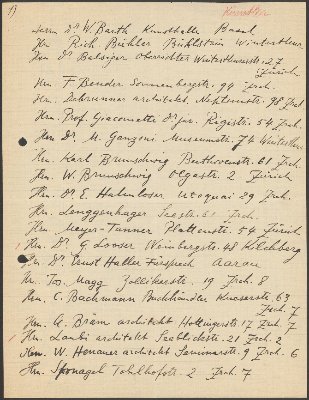 Künstler
Herrn Dr W. Barth Kunsthalle Basel
Hrn. Rich. Bühler Bühlstein Winterthur
Hrn Dr Balsiger Oberrichter Winterthurerstr. 27
Zürich
Hrn. F. Bender Sonnenbergstr. 94 Zrch.
Hrn. Debrunner architekt, Neptunstr. 98 Zrch
Hrn. Prof. Giacometti Dr jur. Rigistr. 54 Zrch.
Hrn Dr. M. Ganzoni Museumstr. 74 Winterthur
Hrn. Karl Brunschwig Beethovenstr. 61 Zrch
Hrn. W. Brunschwig Olgastr. 2 Zürich
Hrn. Dr. E. Hahnloser, Utoquai 29 Zrch.
Hrn. Lenggenhager Seestr. 61 Zrch.
Hrn. Meyer-Tanner Plattenstr. 54 Zürich
Hrn. Dr. G. Looser Weinbergstr. 48 Kilchberg
Hrn Dr. Ernst Haller Fürsprech Aarau
Hr. Jos. Magg Zollikerstr. 19 Zrch. 8
Hrn. C. Bachmann Buchhändler 63
Zrch. 7
Hrn. A. Bräm architekt Hottingerstr 17 Zrch. 7
Hrn. Laubi architekt Seeblickstr. 21 Zrch. 2
Hrn. W. Henauer architekt Seminarstr. 9 Zrch. 6
Hrn. Sponagel Tobelhofstr. 2 Zrch. 7